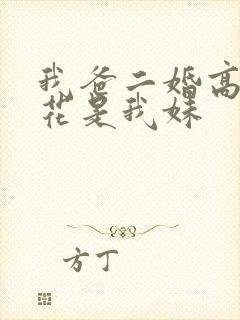 我爸二婚高
花是我妹
方丁